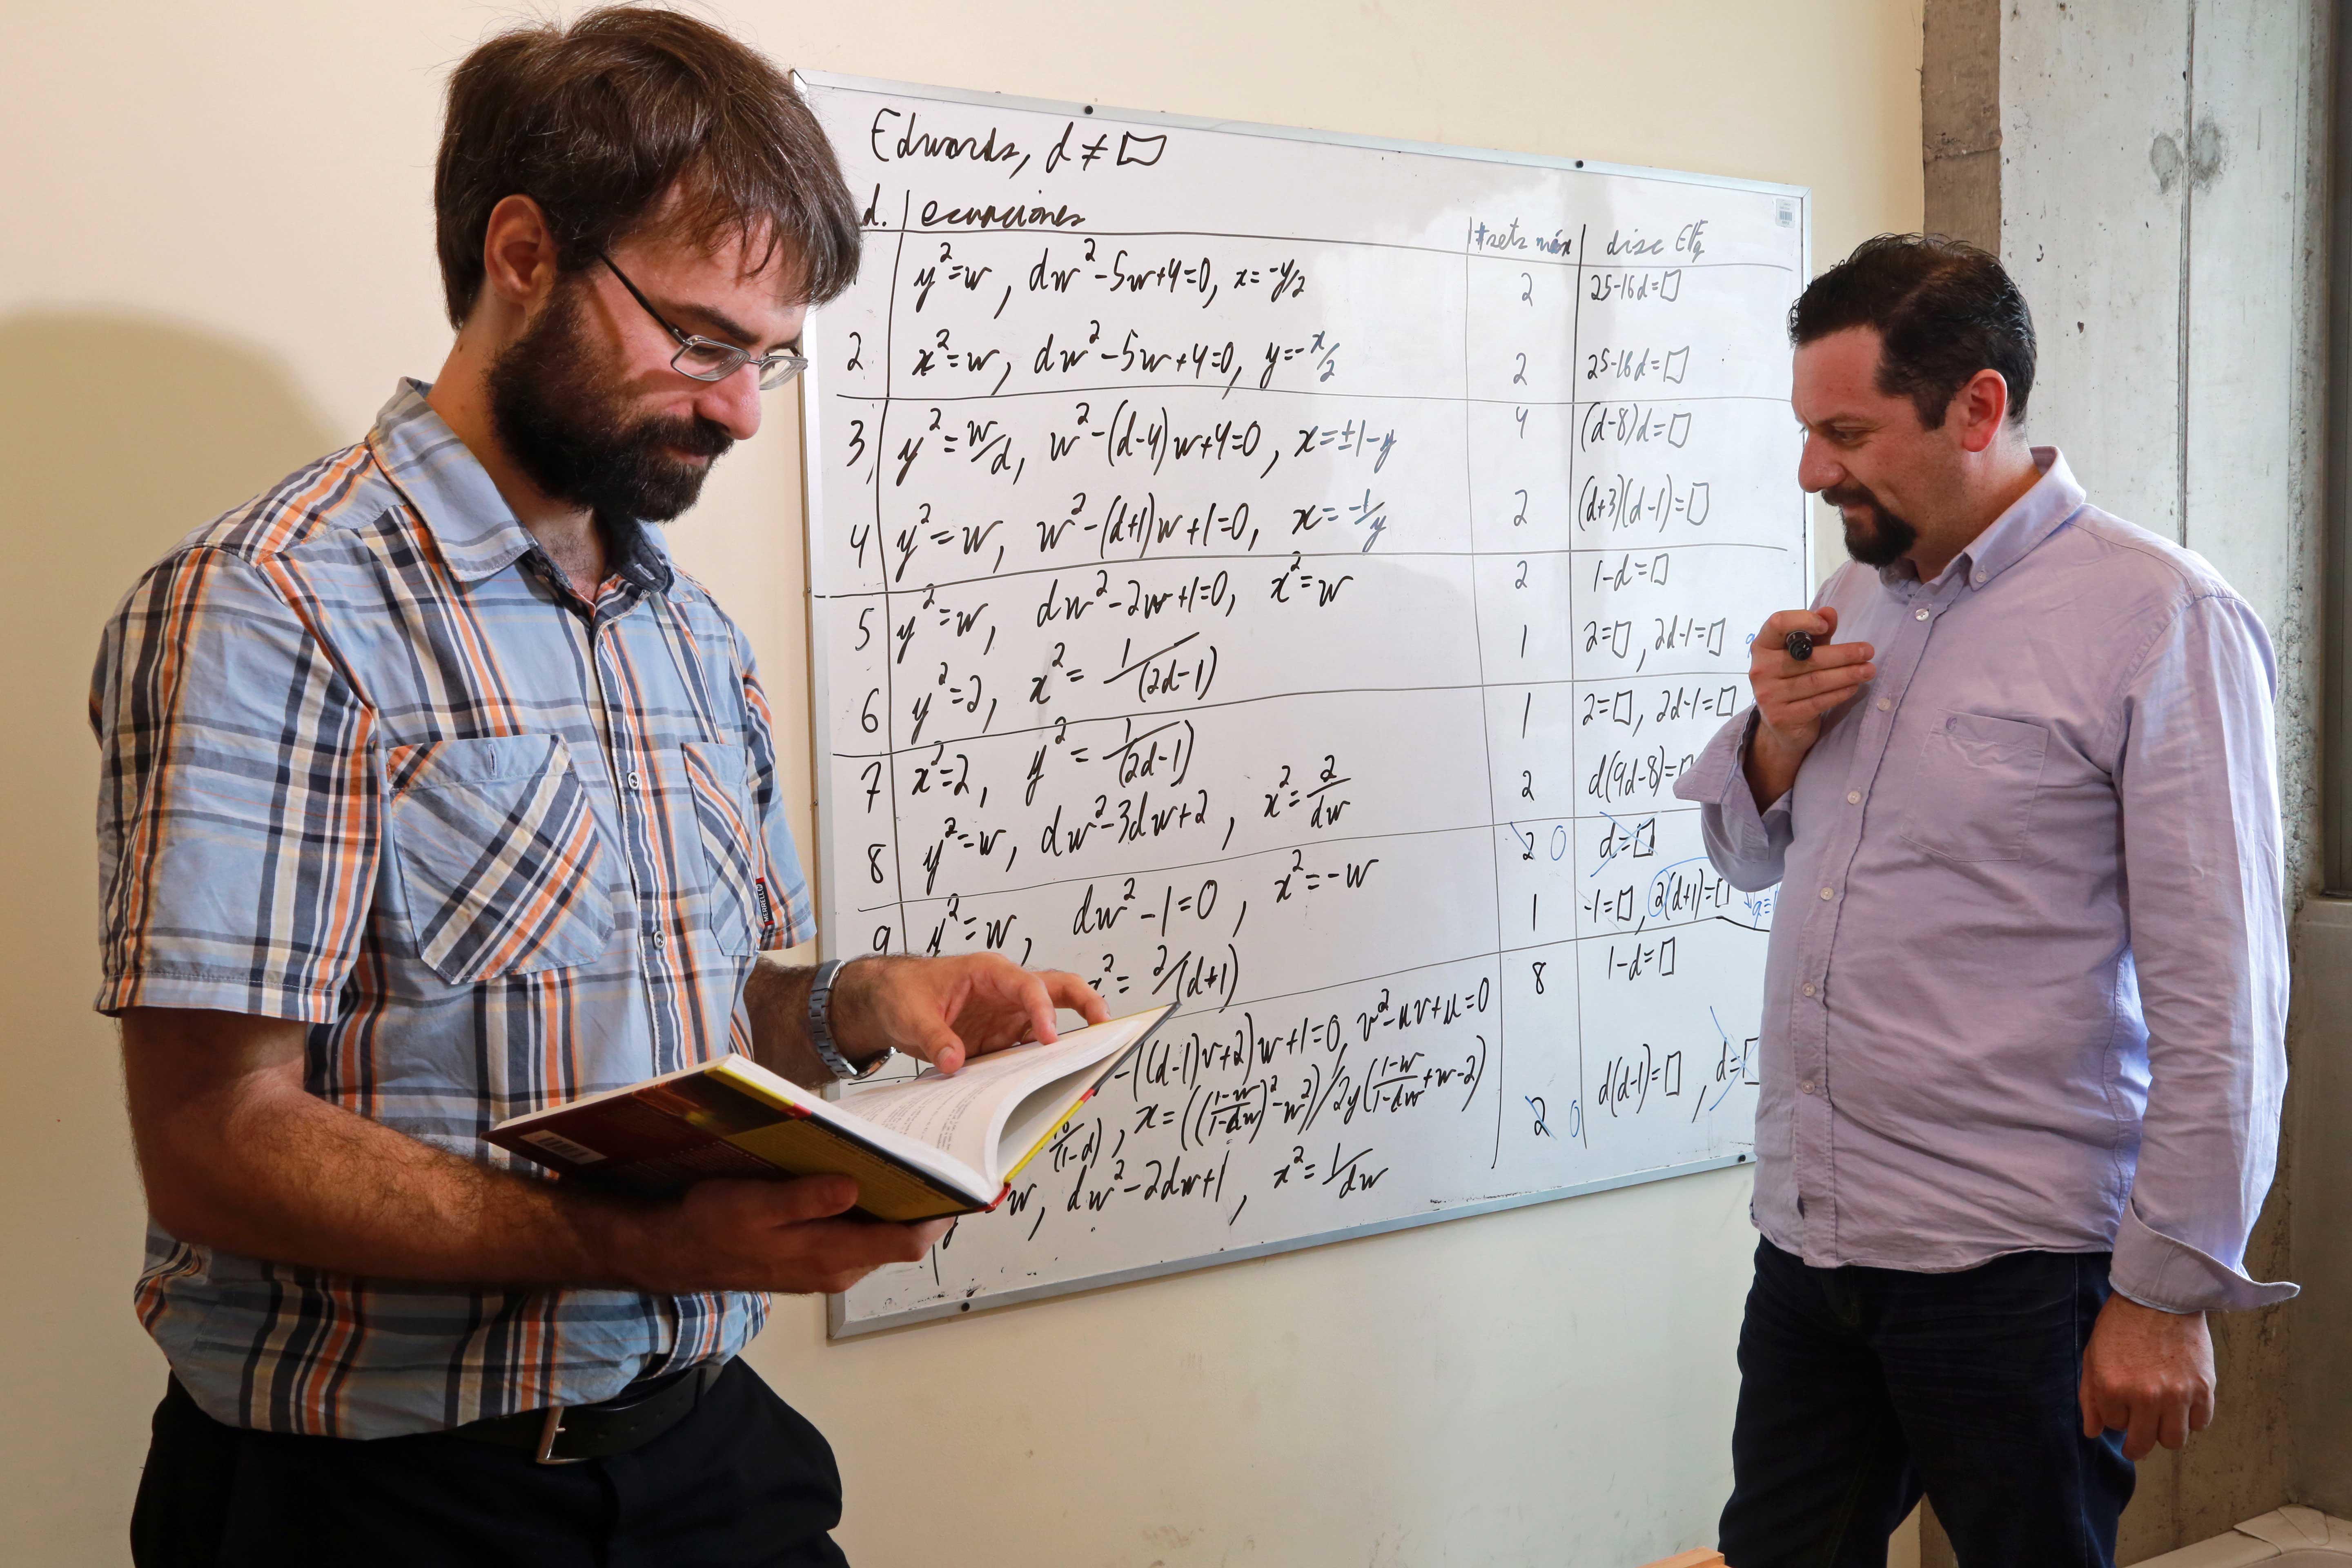 Edwards, d ≠ □
d. | ecuaciones | #sets máx | disc ∈ 𝔽q
y²=w, dw²-5w+4=0, x=-y/2 | 2 | 25-16d=□
2 x²=w, dw²-5w+4=0, y=-x/2 | 2 | 25-16d=□
3 y²=w/d, w²-(d-4)w+4=0, x=±1-y | 4 | (d-8)d=□
4 y²=w, w²-(d+1)w+1=0, x=-1/y | 2 | (d+3)(d-1)=□
5 y²=w, dw²-2w+1=0, x²=w | 2 | 1-d=□
6 y²=2, x²=1/(2d-1) | 1 | 2=□, 2d-1=□
7 x²=2, y²=1/(2d-1) | 1 | 2=□, 2d-1=□
8 y²=w, dw²-3dw+2, x²=2/dw | 2 | d(9d-8)=□
9 y²=w, dw²-1=0, x²=-w | 2 0 | d=□
x²=2/(d+1) | 1 | -1=□, 2(d+1)=□
-((d-1)v+2)w+1=0, v²-uv+u=0 | 8 | 1-d=□
(1-d), x=(((1-w)/(1-dw))²-w²)/2y((1-w)/(1-dw)+w-2)
w, dw²-2dw+1, x²=1/dw | 2 0 | d(d-1)=□, d=□
MERRELL